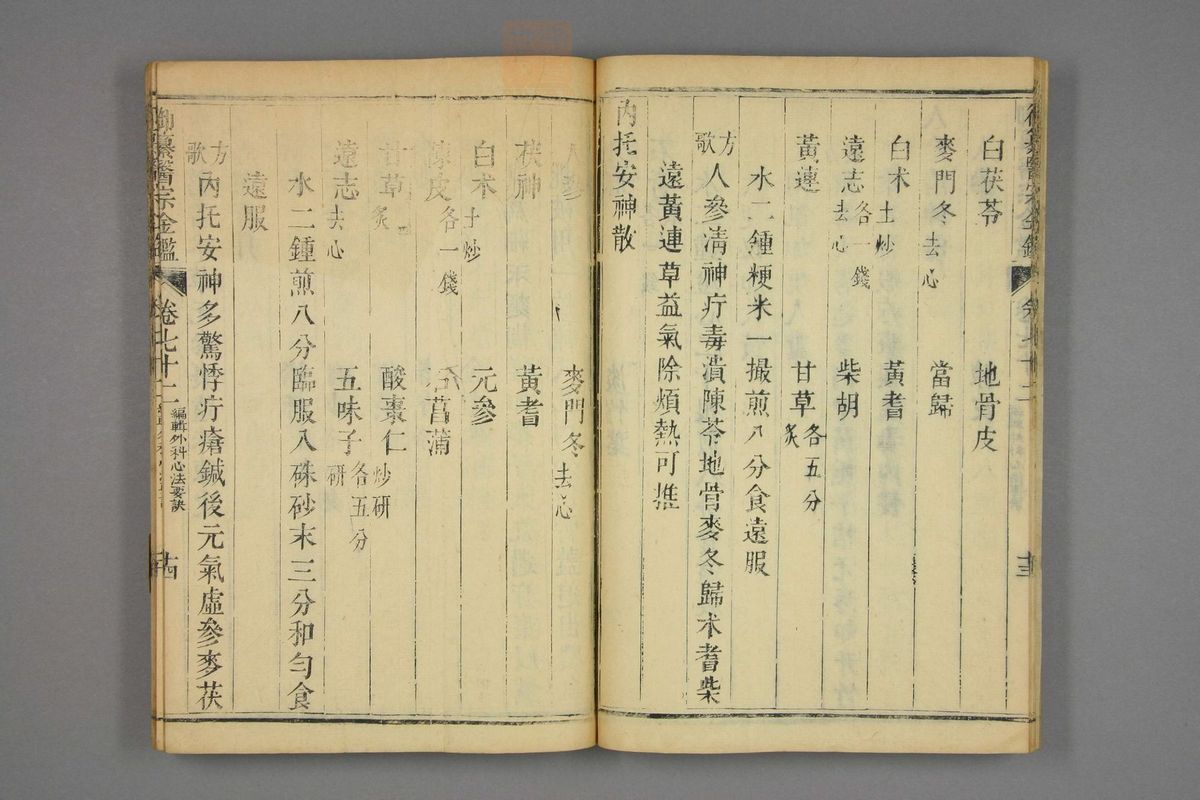 白茯苓 地骨皮
麥門冬去心 當歸
白术土炒 黃耆
遠志去心 各一錢 柴胡
黃連 甘草炙 各五分
水二鍾粳米一撮煎八分食遠服
方歌 人參清神疔毒潰陳苓地骨麥冬歸术耆柴
遠黃連草益氣除煩熱可推
內托安神散
人參 麥門冬去心
茯神 黃耆
白术土炒 元參
陳皮各一錢 石菖蒲
甘草炙 酸棗仁炒研
遠志去心 五味子研 各五分
水二鍾煎八分臨服入硃砂末三分和勻食
遠服
方歌 內托安神多驚悸疔瘡鍼後元氣虛參麥茯
御纂醫宗金鑑 卷七十二 編輯外科心法要訣 十四